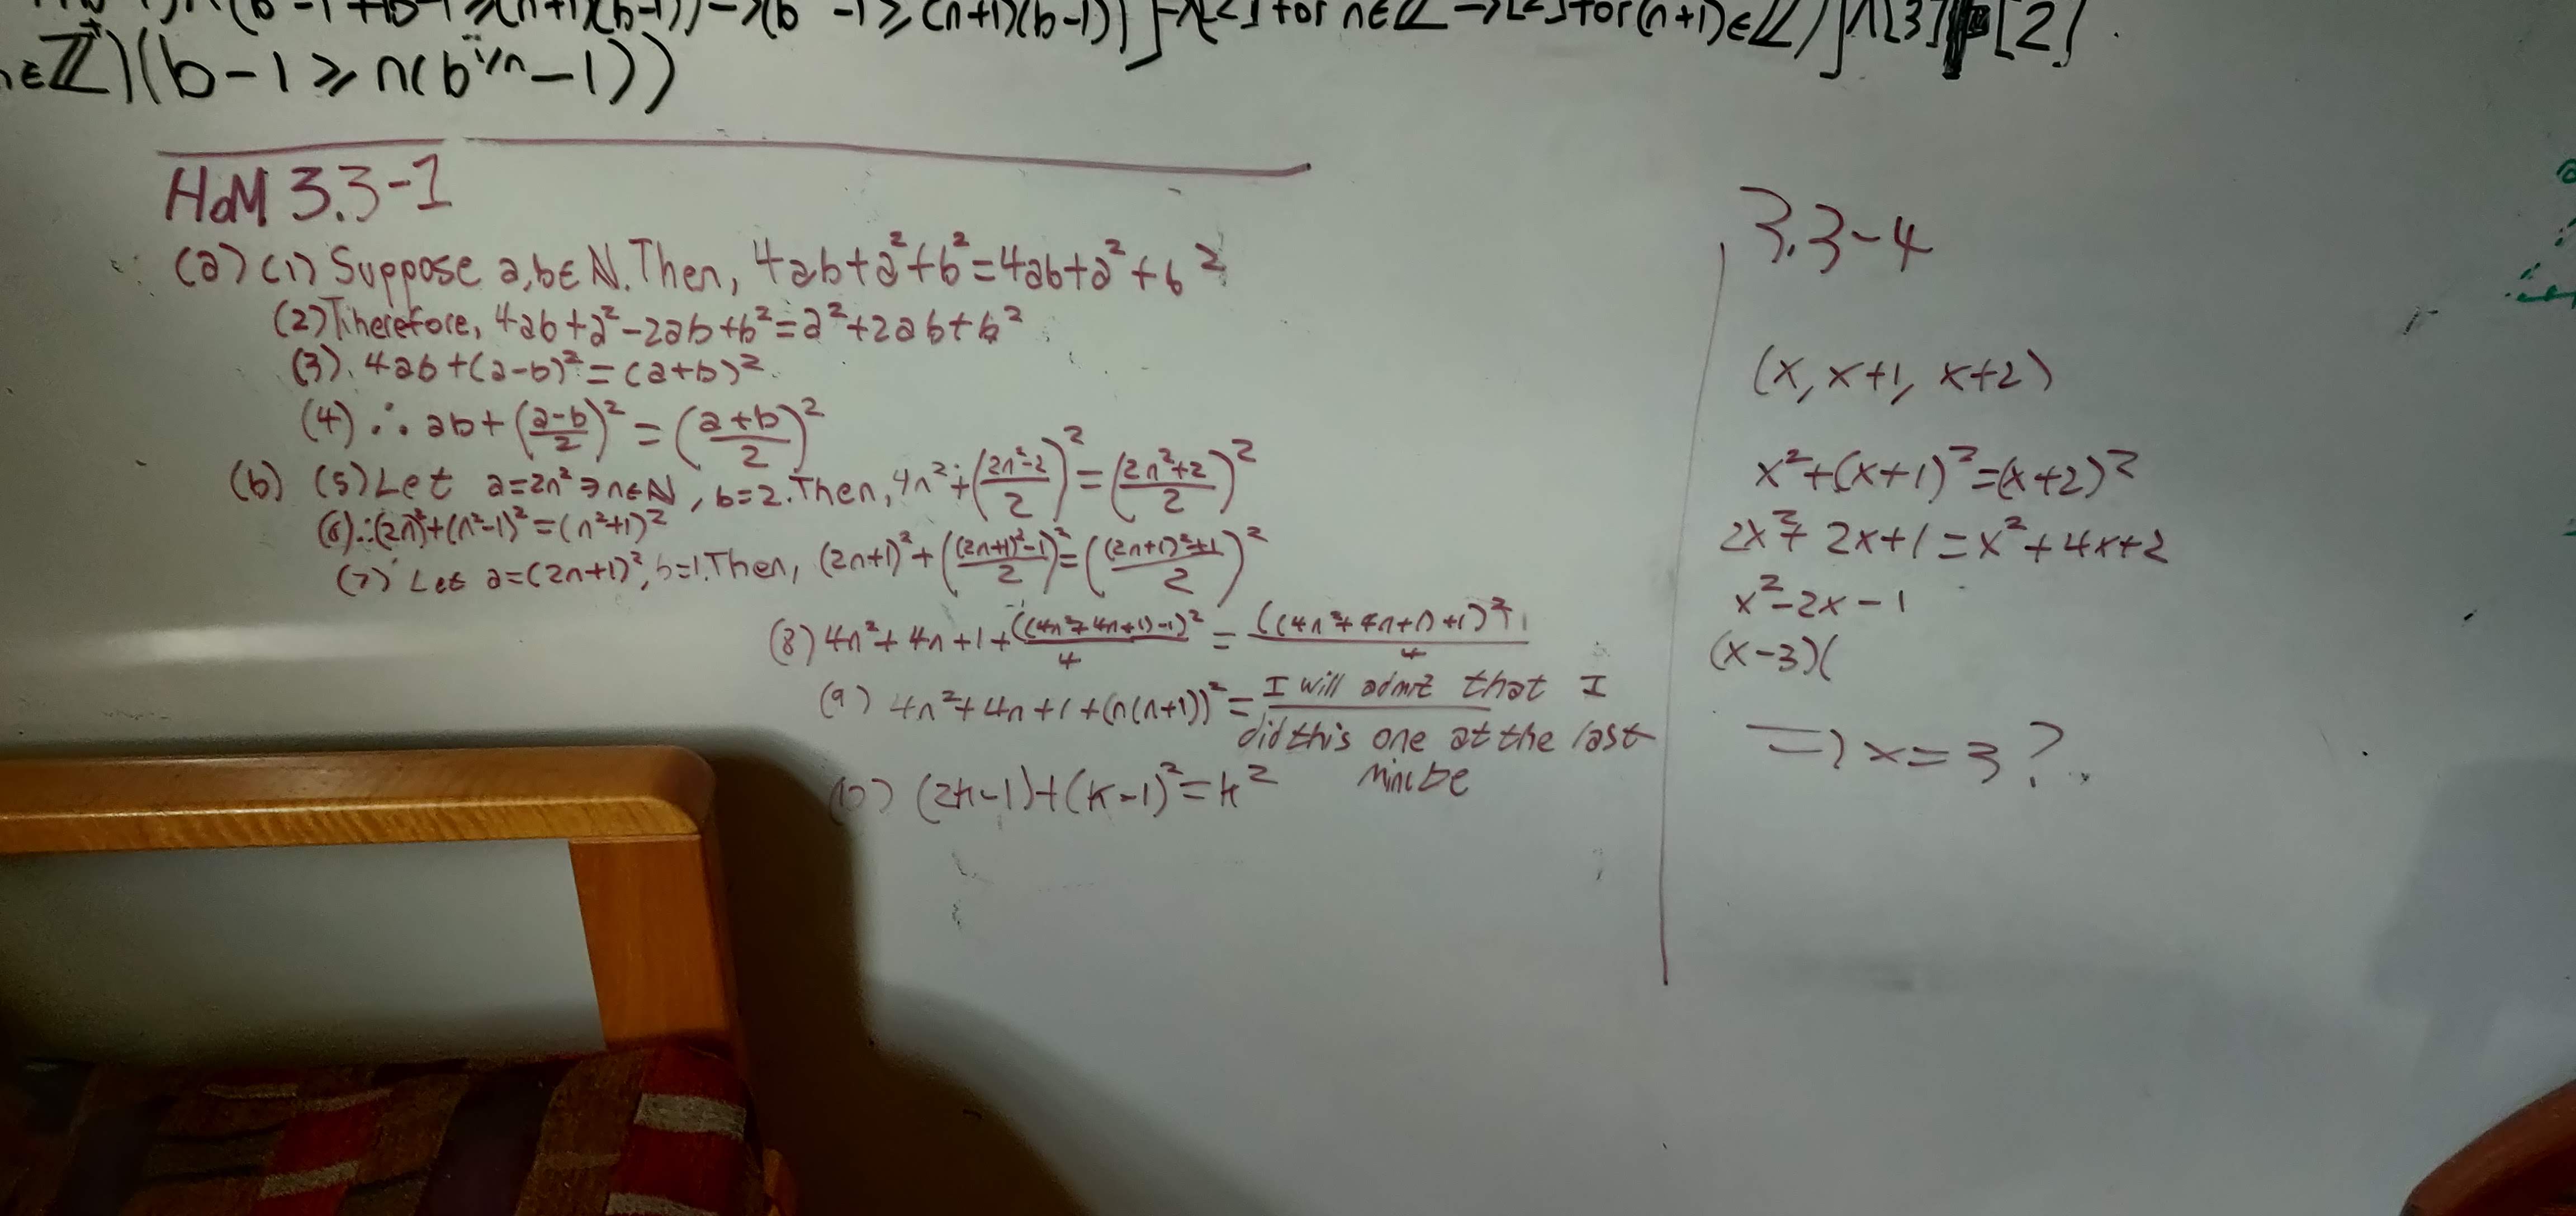 (b -1≥(n+1)(b-1)) →(b -1≥(n+1)(b-1))]→[2] for n∈ℤ→[2] for (n+1)∈ℤ)]∧[3] [2].
n∈ℤ⁺)(b-1≥n(b^{1/n}-1))
HoM 3.3-1
(a) (1) Suppose a,b∈ℕ. Then, 4ab+a²+b²=4ab+a²+b²
(2) Therefore, 4ab+a²-2ab+b²=a²+2ab+b²
(3) ∴ 4ab+(a-b)²=(a+b)²
(4) ∴ ab+((a-b)/2)²=((a+b)/2)²
(b) (5) Let a=2n²∋n∈ℕ, b=2. Then, 4n²+((2n²-2)/2)²=((2n²+2)/2)²
(6) ∴(2n)²+(n²-1)²=(n²+1)²
(7) Let a=(2n+1)², b=1. Then, (2n+1)²+(((2n+1)²-1)/2)²=(((2n+1)²+1)/2)²
(8) 4n²+4n+1+((4n²+4n+1)-1)²/4=((4n²+4n+1)+1)²/4
(9) 4n²+4n+1+(n(n+1))²= I will admit that I
did this one at the last
minute
(10) (2k-1)+(k-1)²=k²
3.3-4
(x, x+1, x+2)
x²+(x+1)²=(x+2)²
2x²+2x+1=x²+4x+2
x²-2x-1
(x-3)(
⇒x=3?